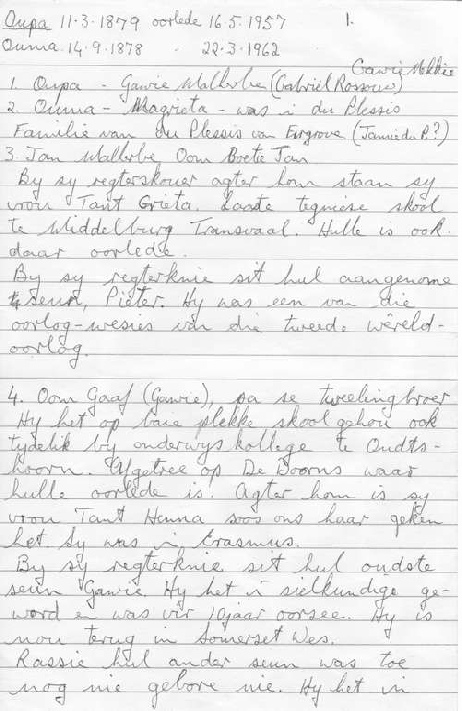 Oupa 11·3·1879 oorlede 16·5·1957 1.
Ouma 14·9·1878 · 22·3·1962
Gawie
1. Oupa - Gawie Malherbe (Gabriel Rossouw)
2. Ouma - Magrieta - was 'n du Plessis
Familie van du Plessis van (Jannie du P.?)
3 Jan Malherbe, Oom Boetie Jan
By sy regterskouer agter hom staan sy
vrou Tant Grieta. Laaste tegniese skool
te Middelburg Transvaal. Hulle is ook
daar oorlede.
By sy regterknie sit hul aangenome
seun, Pieter. Hy was een van die
oorlog-wesies van die tweede wêreld-
oorlog.
4. Oom Gaaf (Gawie), pa se tweelingbroer
Hy het op baie plekke skool gehou ook
tydelik by onderwyskollege te Oudts-
hoorn. Afgetree op De Doorns waar
hulle oorlede is. Agter hom is sy
vrou Tant Henna soos ons haar geken
het. Sy was 'n Erasmus.
By sy regterknie sit hul oudste
seun Gawie. Hy het 'n sielkundige ge-
word en was vir 10jaar oorsee. Hy is
nou terug in Somerset Wes.
Rassie hul ander seun was toe
nog nie gebore nie. Hy het in